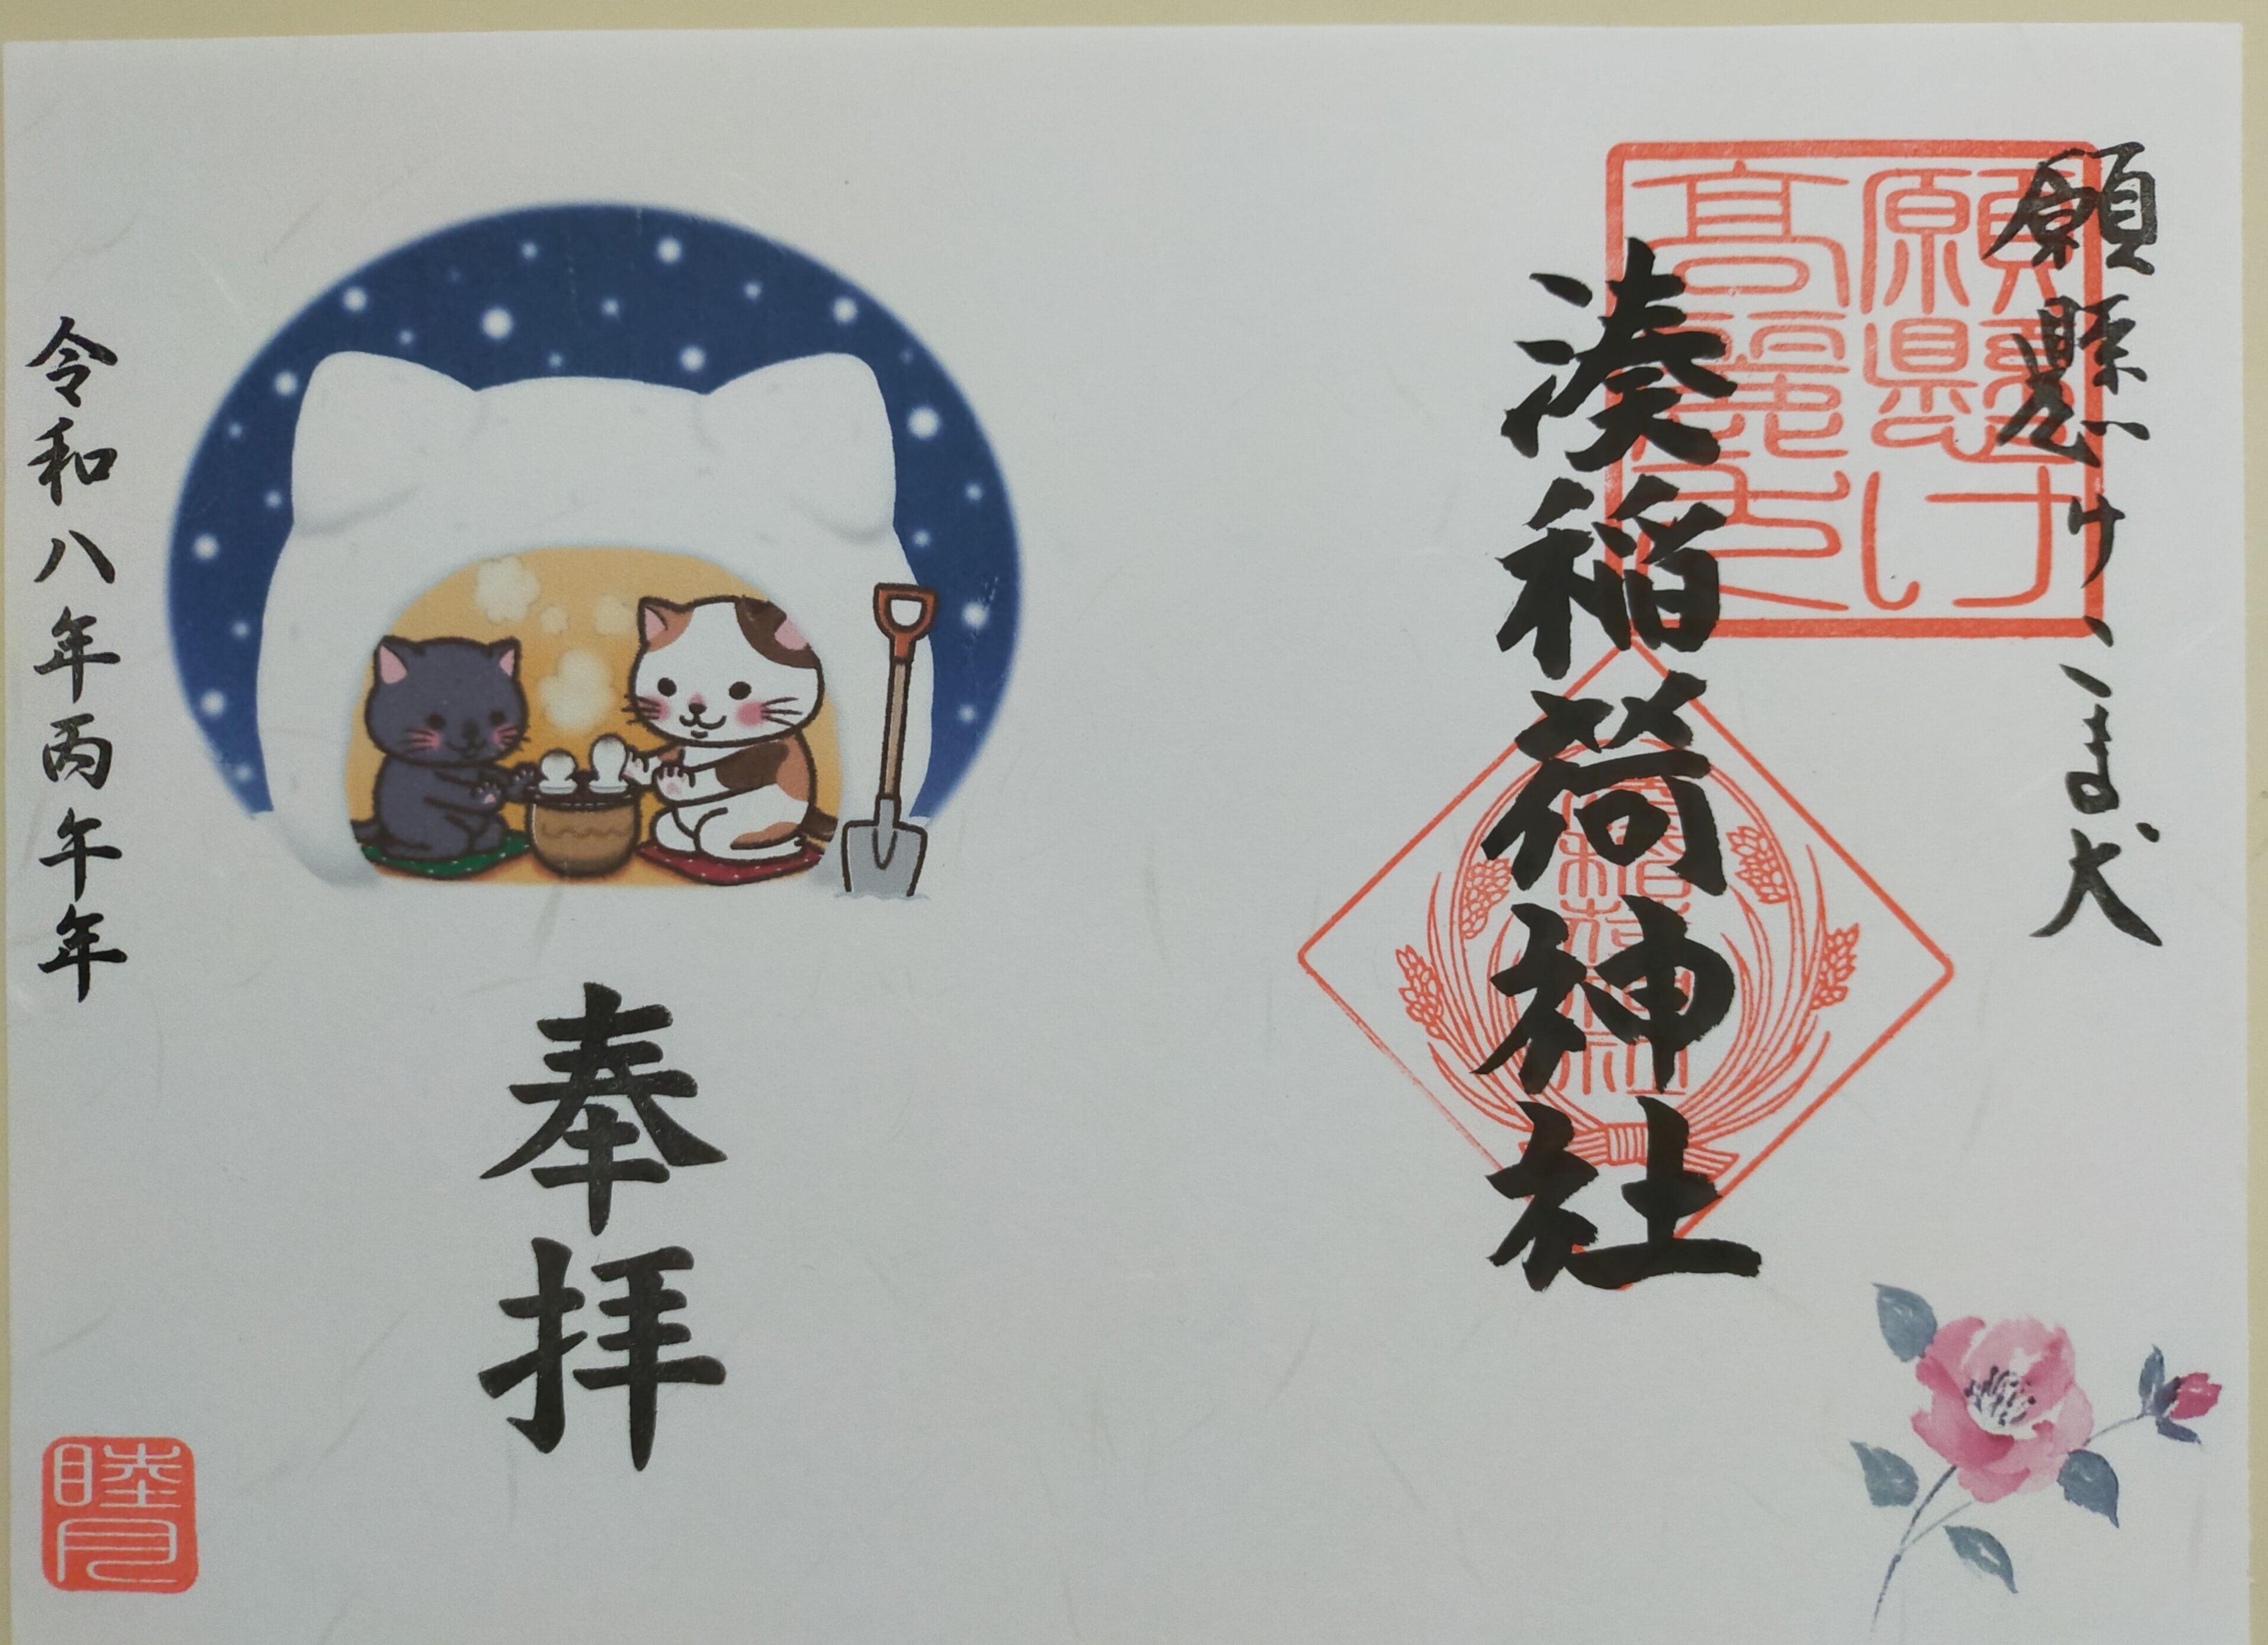 願懸けこま犬
願懸け
高麗犬
湊稲荷神社
奉拝
令和八年丙午年
睦月